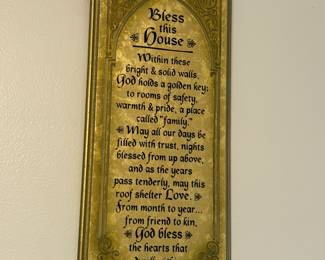 Bless
this
House
Within these
bright & solid walls,
God holds a golden key;
to rooms of safety,
warmth & pride, a place
called "family."
May all our days be
filled with trust, nights
blessed from up above,
and as the years
pass tenderly, may this
roof shelter Love.
From month to year...
from friend to kin,
God bless
the hearts that